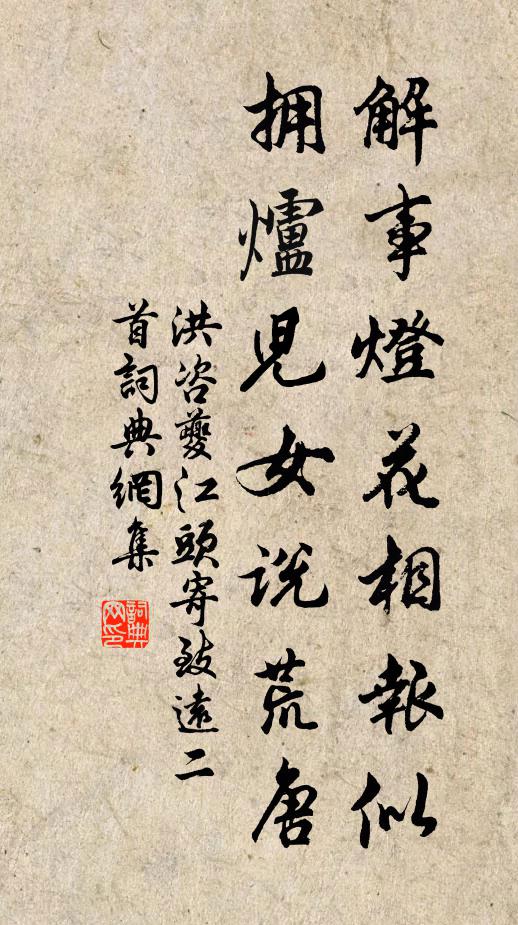 解事燈花相報似
拥爐兒女說荒唐
洪咨夔江頭寄致遠二
首詞典網集
詞典
网印